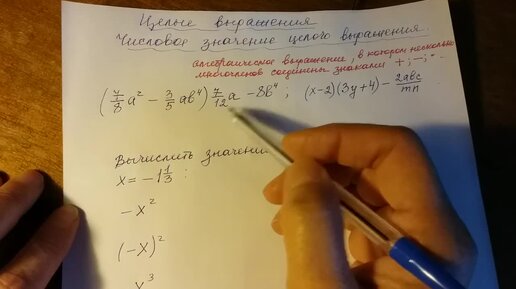 Целые выражения
Числовое значение целого выражения.
алгебраическое выражение, в котором несколько
многочленов соединены знаками +; −; ·
(7/8 a² − 3/5 ab⁴) 7/12 a − 8b⁴; (x−2)(3y+4) − 2abc/mn
Вычислить значени
x = −1 1/3 :
−x²
(−x)²
x³